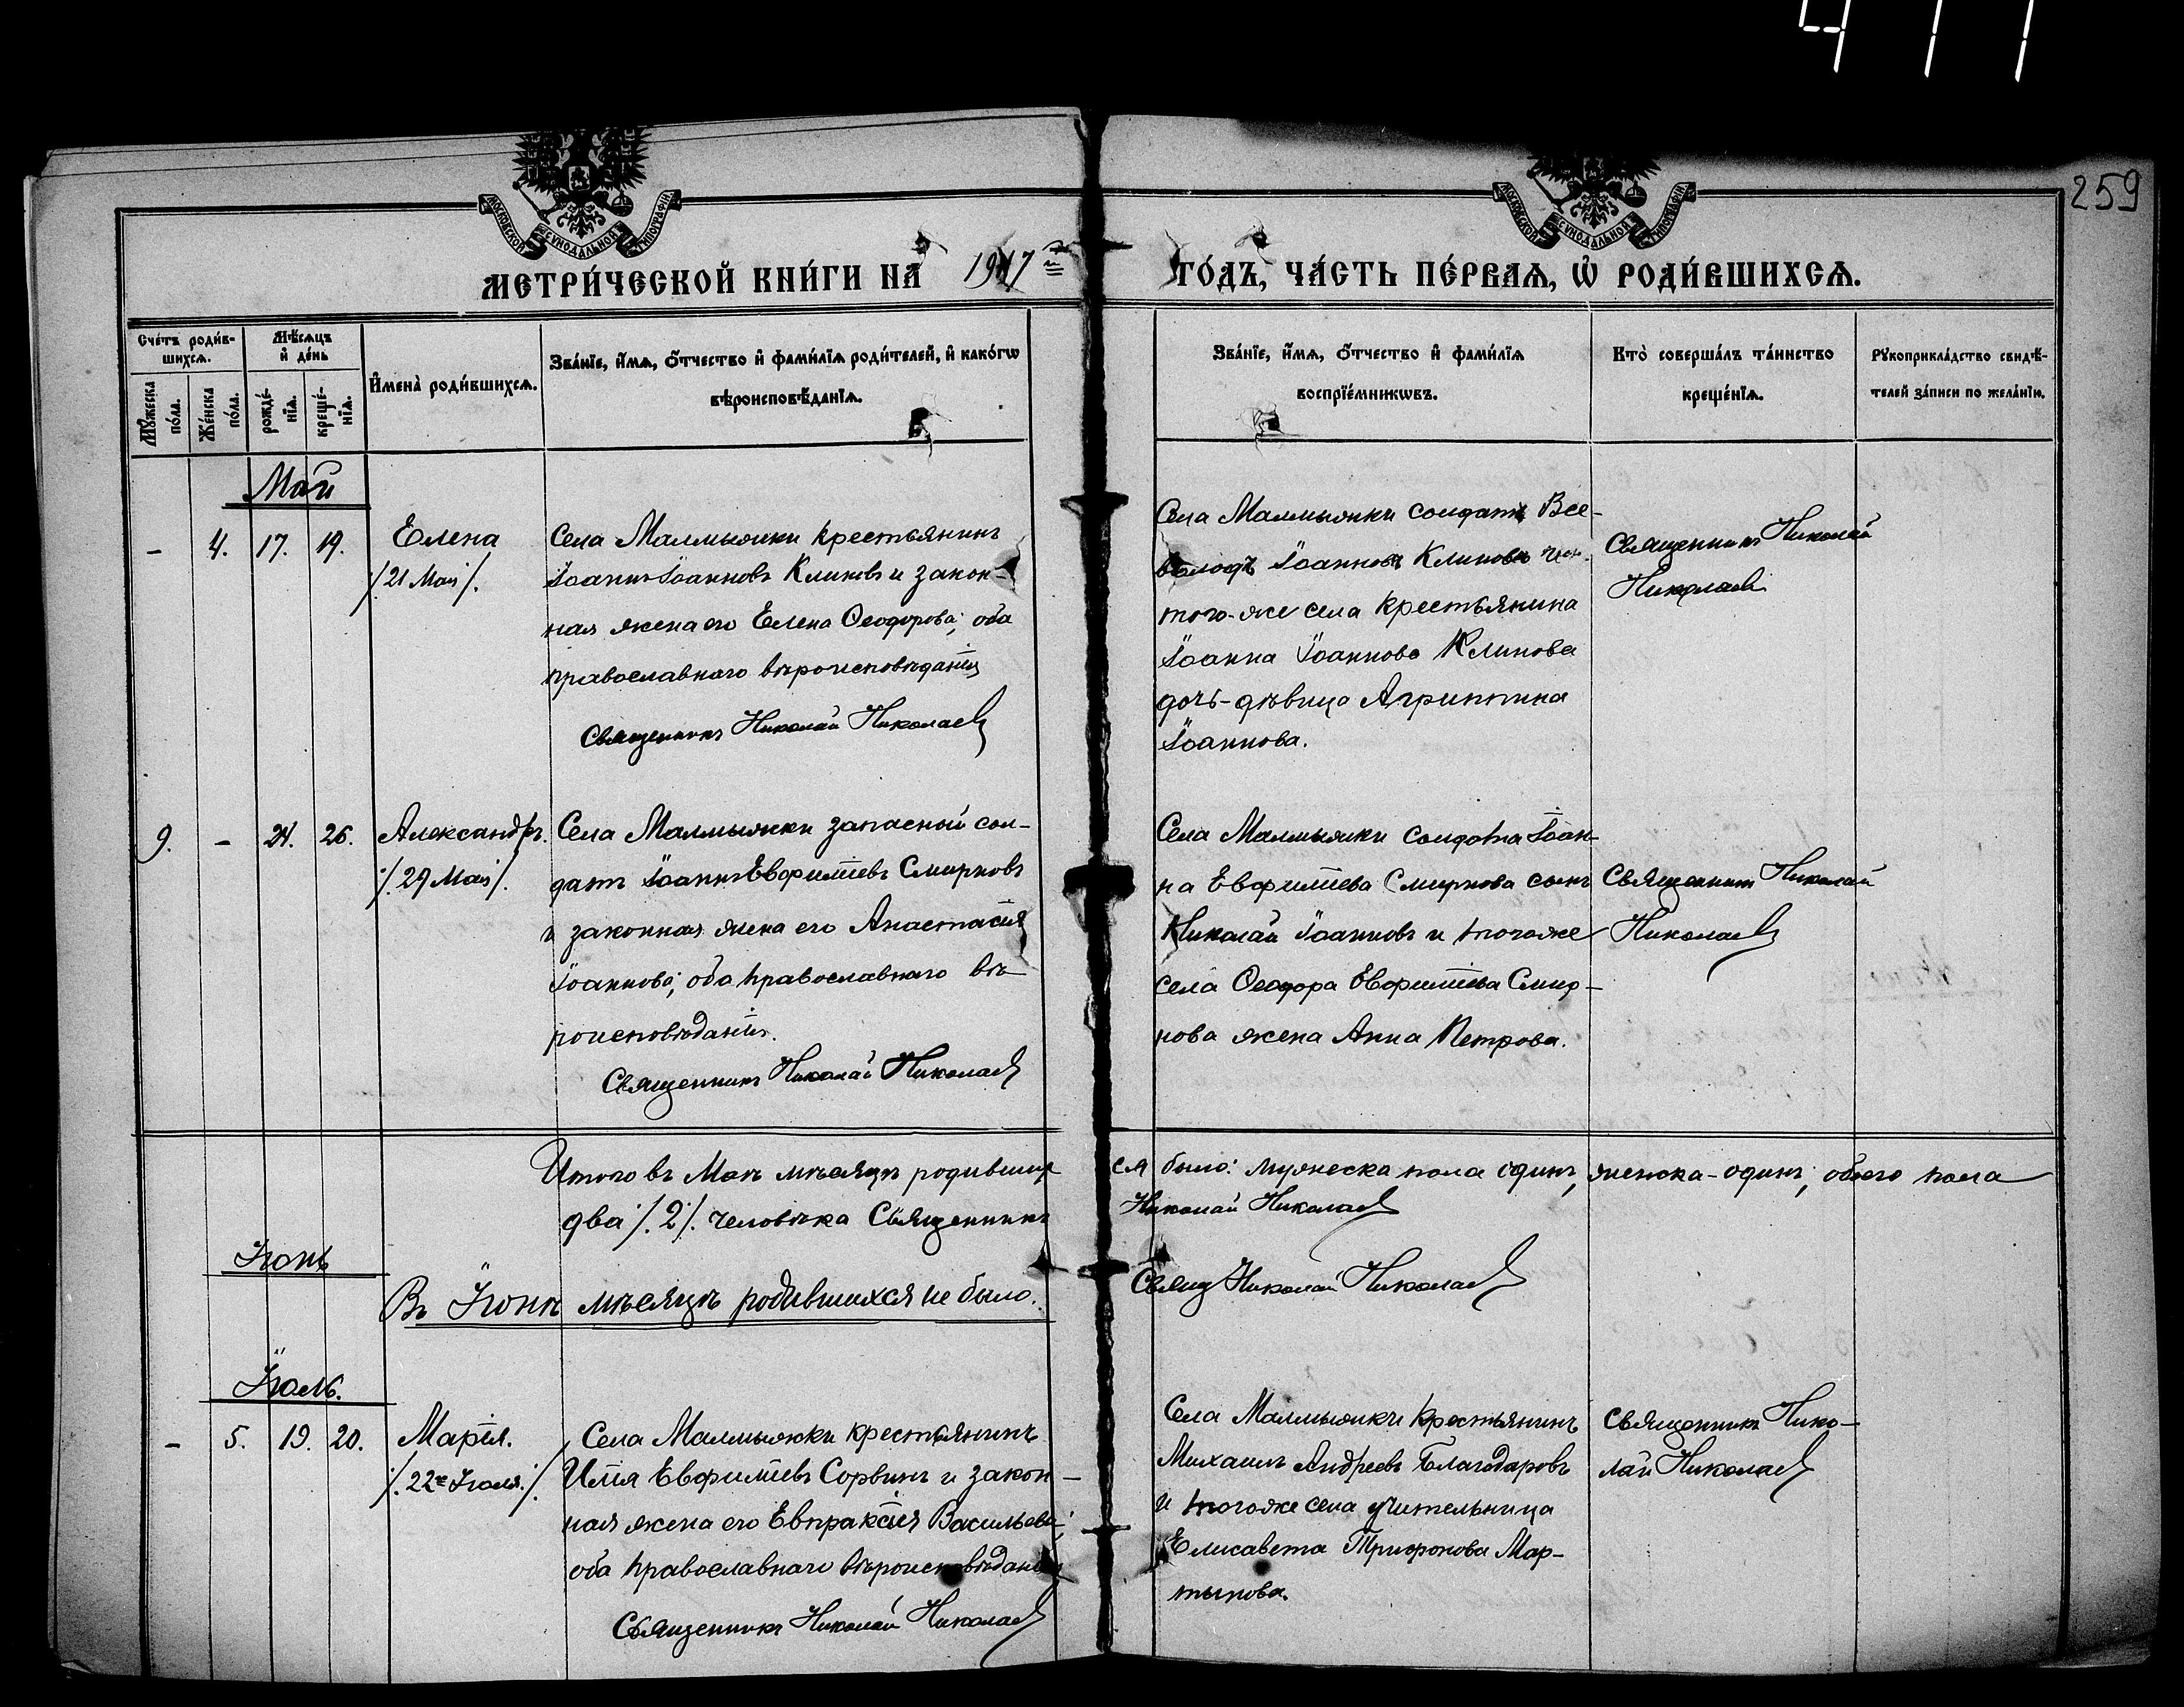 411
259
МОСКОВСКОЙ СѴНОДАЛЬНОЙ ТИПОГРАФІИ
МОСКОВСКОЙ СѴНОДАЛЬНОЙ ТИПОГРАФІИ
МЕТРИ́ЧЕСКОЙ КНИ́ГИ НА 1917 ГО́ДЪ, ЧА́СТЬ ПЕ́РВАѦ, Ѡ҆ РОДИ́ВШИХСѦ.
Сче́тъ роди́в-
шихсѧ.
Мꙋ́жеска
по́ла.
Же́нска
по́ла.
Мѣ́сѧцъ
и҆ де́нь
рожде́-
нїѧ.
креще́-
нїѧ.
И҆мена̀ роди́вшихсѧ.
Зва́нїе, и҆́мѧ, ѻ҆́тчество и҆ фами́лїѧ роди́телей, и҆ како́гѡ
вѣроисповѣ́данїѧ.
Зва́нїе, и҆́мѧ, ѻ҆́тчество и҆ фами́лїѧ
воспрїе́мникѡвъ.
Кто̀ соверша́лъ та́инство
креще́нїѧ.
Рꙋкоприкла́дство свидѣ́-
телей за́писи по жела́нїю.
Май
- 4. 17. 19.
Елена
/21 Мая/.
Села Малмыжки крестьянинъ
Іоаннъ Іоанновъ Климовъ и закон-
ная жена его Елена Ѳеодорова; оба
православнаго вѣроисповѣданія
Священникъ Николай Николаевъ
Села Малмыжки солдатъ Все-
володъ Іоанновъ Климовъ и
того-же села крестьянина
Іоанна Іоаннова Климова
дочь-дѣвица Агриппина
Іоаннова.
Священникъ Николай
Николаевъ
9. - 24. 26.
Александръ.
/.29 Мая/.
Села Малмыжки запасный сол-
датъ Іоаннъ Евфиміевъ Смирновъ
и законная жена его Анастасія
Іоаннова; оба православнаго вѣ-
роисповѣданія.
Священникъ Николай Николаевъ
Села Малмыжки солдата Іоан-
на Евфиміева Смирнова сынъ
Николай Іоанновъ и тогоже
села Ѳеодора Евфиміева Смир-
нова жена Анна Петрова.
Священникъ Николай
Николаевъ
Итого въ Маѣ мѣсяцѣ родивших
ся было: мужеска пола одинъ, женска-одинъ, обоего пола
два /.2/. человѣка Священникъ
Николай Николаевъ
Іюнь
Въ Іюнѣ мѣсяцѣ родившихся не было.
Свящ Николай Николаевъ
Іюль.
- 5. 19. 20.
Марія.
/.22е Іюля./
Села Малмыжки крестьянинъ
Илія Евфиміевъ Сорвинъ и закон-
ная жена его Евпраксія Васильева;
оба православнаго вѣроисповѣданія
Священникъ Николай Николаевъ
Села Малмыжки крестьянинъ
Михаилъ Андреевъ Благодаровъ
и тогоже села учительница
Елисавета Трифонова Мар-
тынова.
Священникъ Нико-
лай Николаевъ